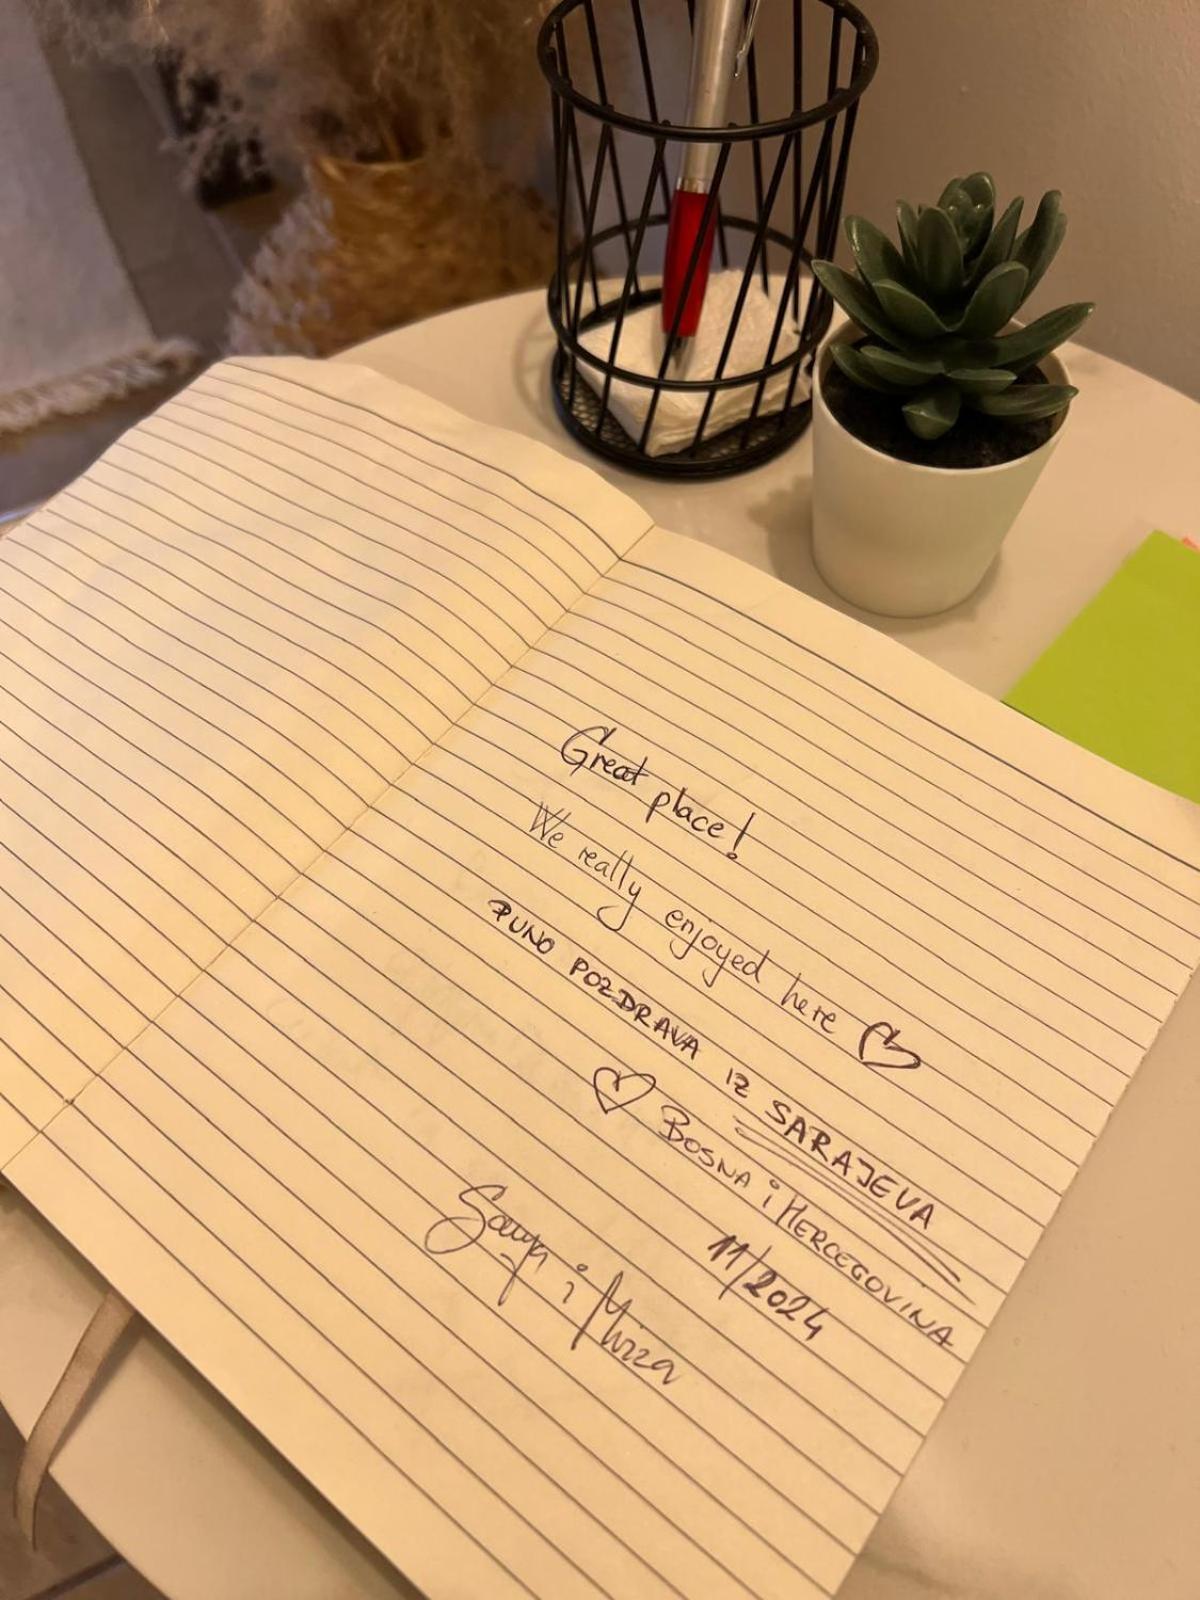 Great place!
We really enjoyed here ♡
PUNO POZDRAVA IZ SARAJEVA
♡ BOSNA i HERCEGOVINA
11/2024
Sanja i Mirza